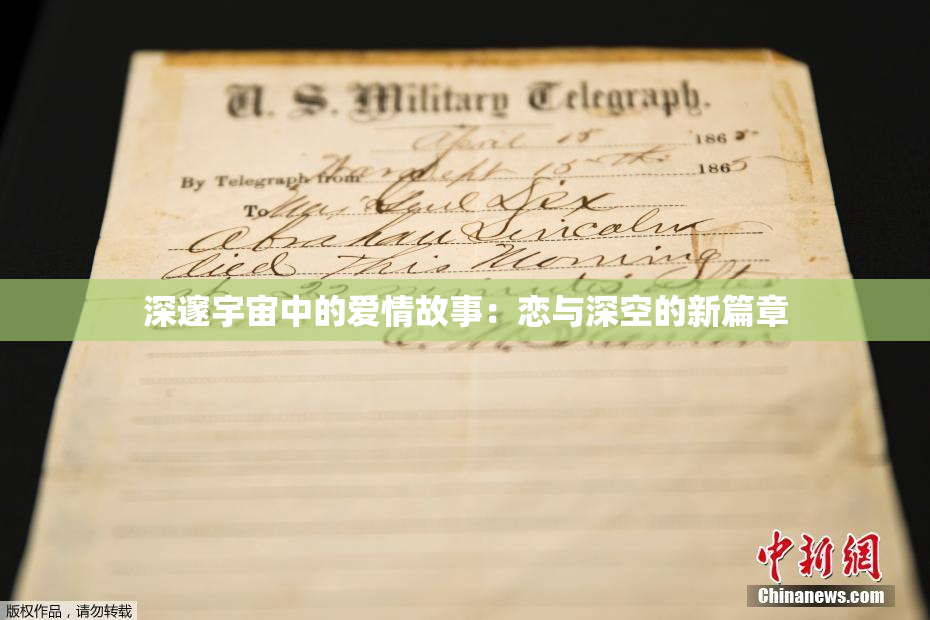 U. S. Military Telegraph.
April 15 1865.
By Telegraph from War Dept 15th 1865
To Maj Genl Dix
Abraham Lincoln
died This Morning
at 22 minutes after
深邃宇宙中的爱情故事：恋与深空的新篇章
E. M. Stanton
中新网
Chinanews.com
版权作品，请勿转载